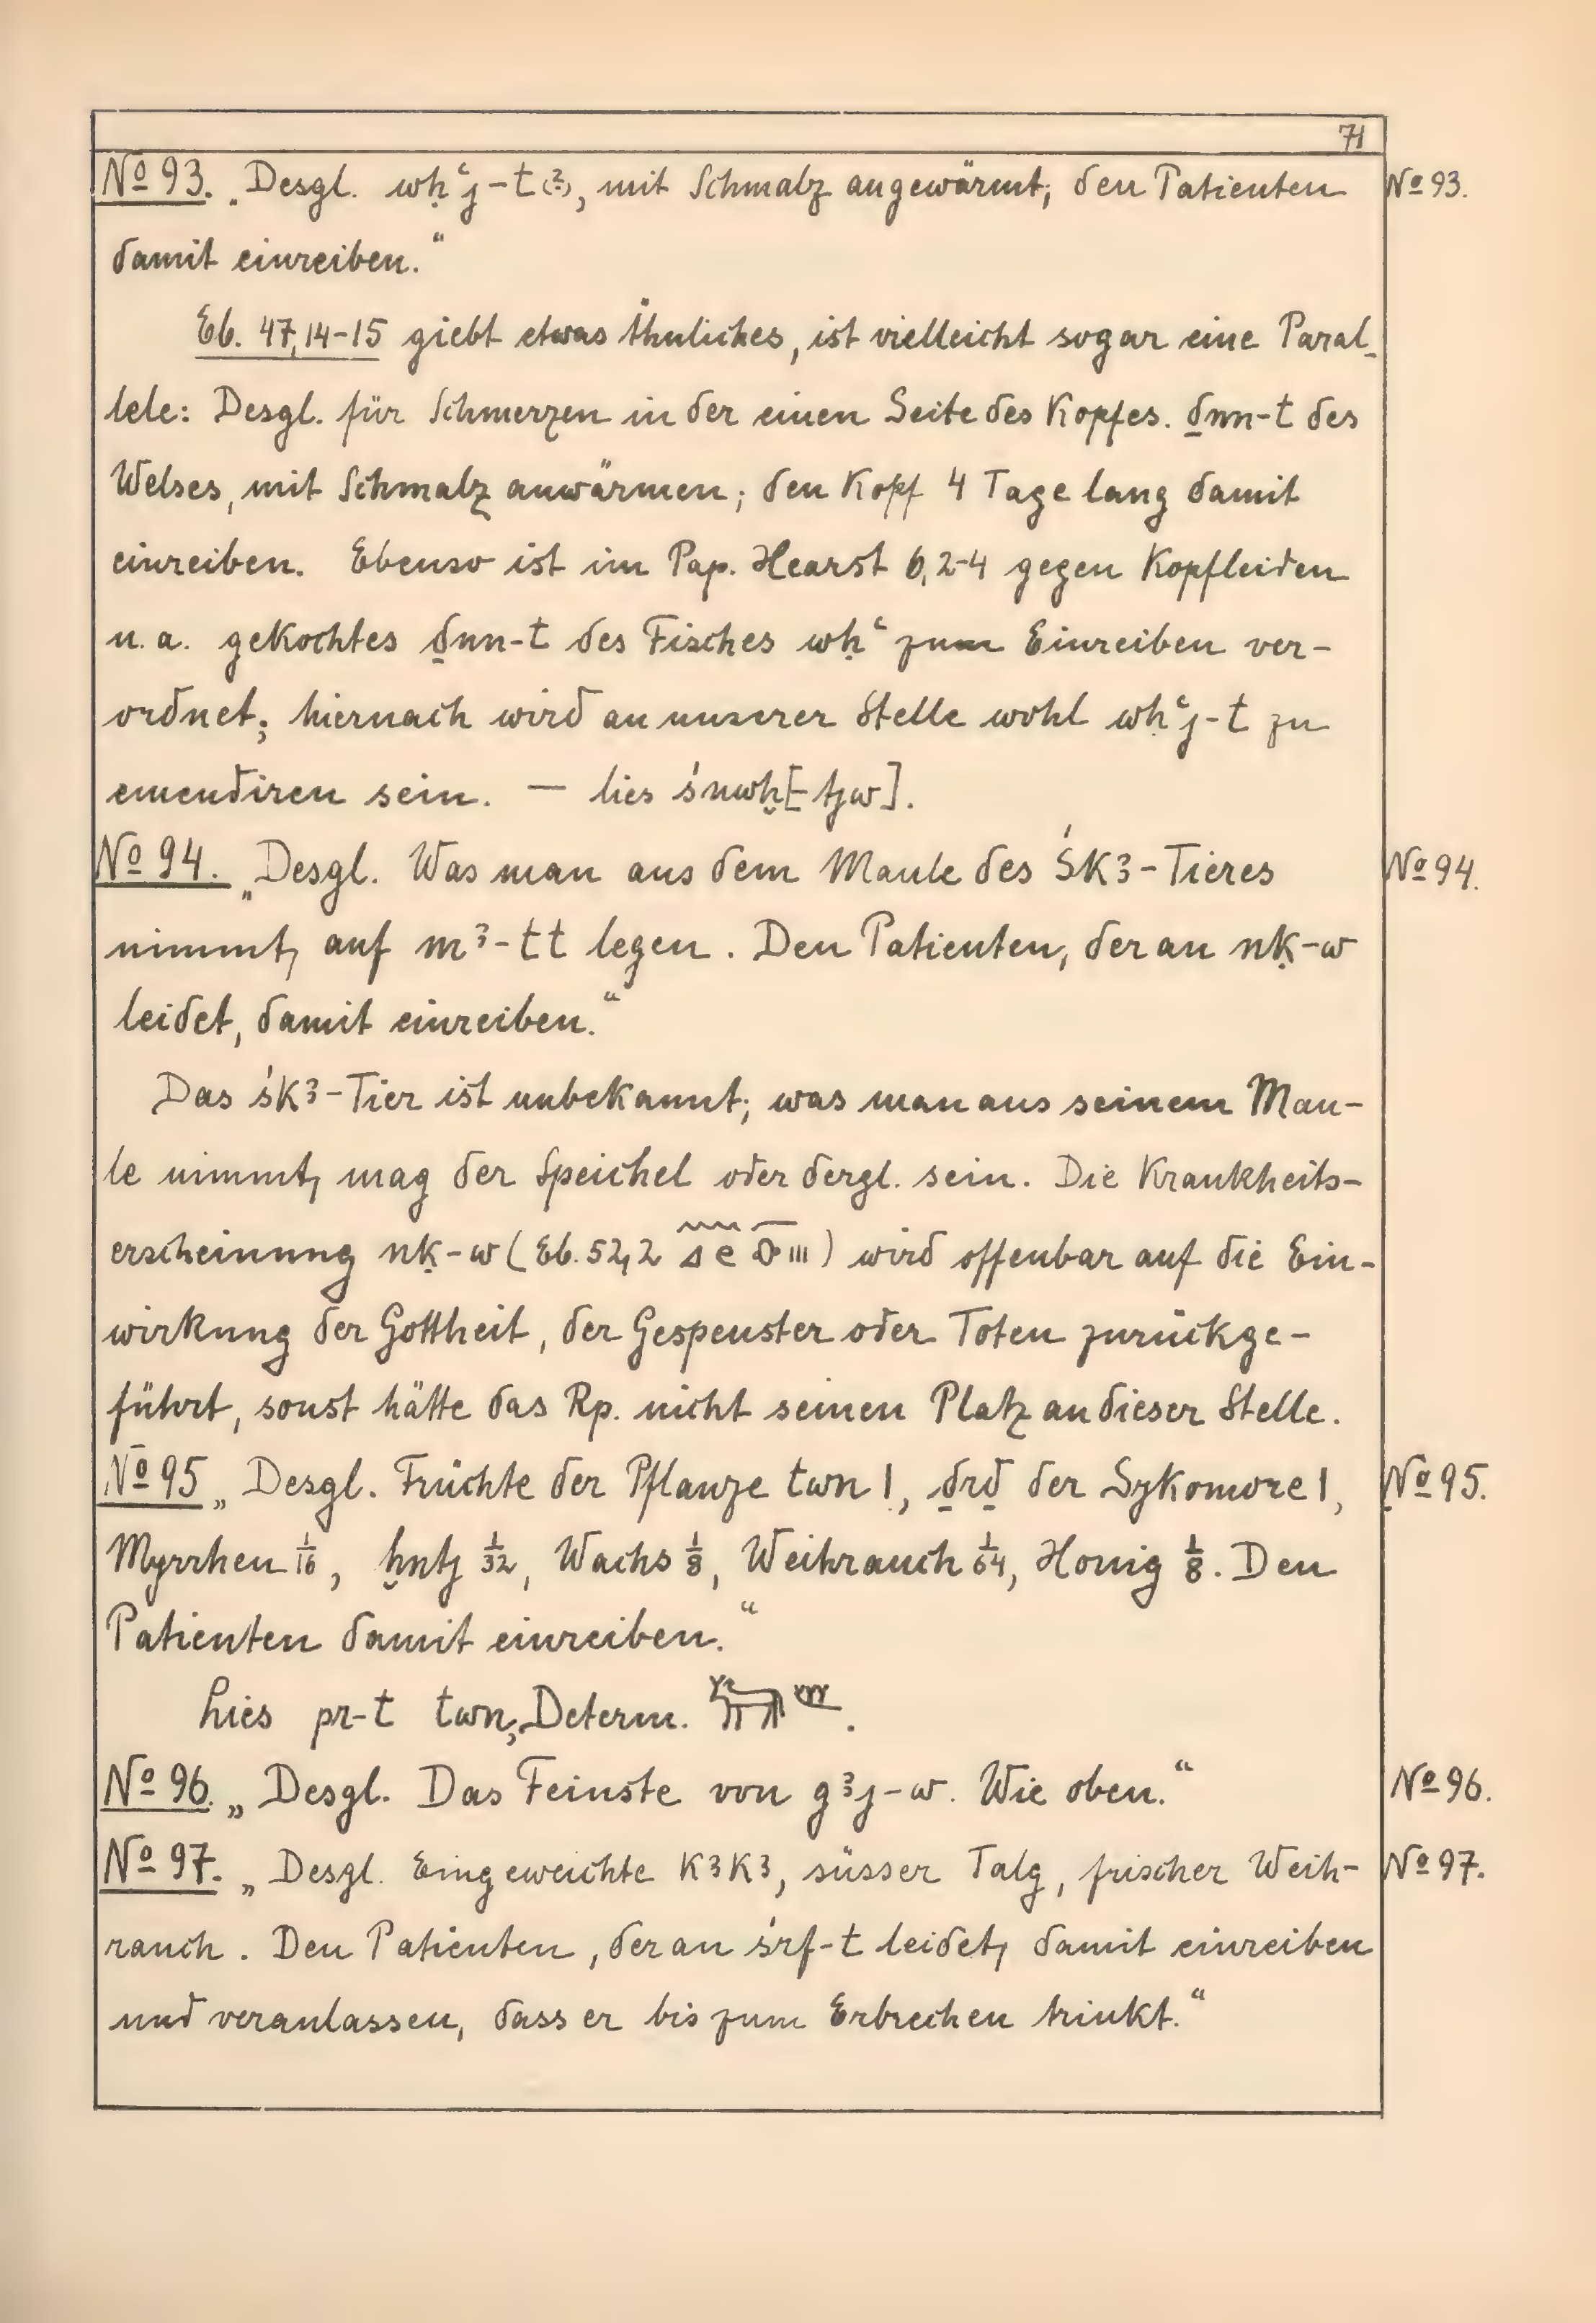 71
No 93. „Desgl. wḥʿj-t(?), mit Schmalz angewärmt; den Patienten No 93.
damit einreiben.“
Eb. 47,14-15 giebt etwas Ähnliches, ist vielleicht sogar eine Paral-
lele: Desgl. für Schmerzen in der einen Seite des Kopfes. ḏnn-t des
Welses, mit Schmalz anwärmen; den Kopf 4 Tage lang damit
einreiben. Ebenso ist im Pap. Hearst 6,2-4 gegen Kopfleiden
u. a. gekochtes ḏnn-t des Fisches wḥʿ zum Einreiben ver-
ordnet; hiernach wird an unserer Stelle wohl wḥʿj-t zu
emendiren sein. — lies śnwḫ[-tjw].
No 94. „Desgl. Was man aus dem Maule des Śkꜣ-Tieres No 94.
nimmt, auf mꜣ-tt legen. Den Patienten, der an nḳ-w
leidet, damit einreiben.“
Das śkꜣ-Tier ist unbekannt; was man aus seinem Mau-
le nimmt, mag der Speichel oder dergl. sein. Die Krankheits-
erscheinung nḳ-w (Eb. 52,2 ) wird offenbar auf die Ein-
wirkung der Gottheit, der Gespenster oder Toten zurückge-
führt, sonst hätte das Rp. nicht seinen Platz an dieser Stelle.
No 95 „Desgl. Früchte der Pflanze twn 1, ḏrḏ der Sykomore 1, No 95.
Myrrhen 1/16, ḫntj 1/32, Wachs 1/8, Weihrauch 1/64, Honig 1/8. Den
Patienten damit einreiben.“
Lies pr-t twn, Determ. .
No 96. „Desgl. Das Feinste von gꜣj-w. Wie oben.“ No 96.
No 97. „Desgl. Eingeweichte kꜣkꜣ, süsser Talg, frischer Weih- No 97.
rauch. Den Patienten, der an śrf-t leidet, damit einreiben
und veranlassen, dass er bis zum Erbrechen trinkt.“